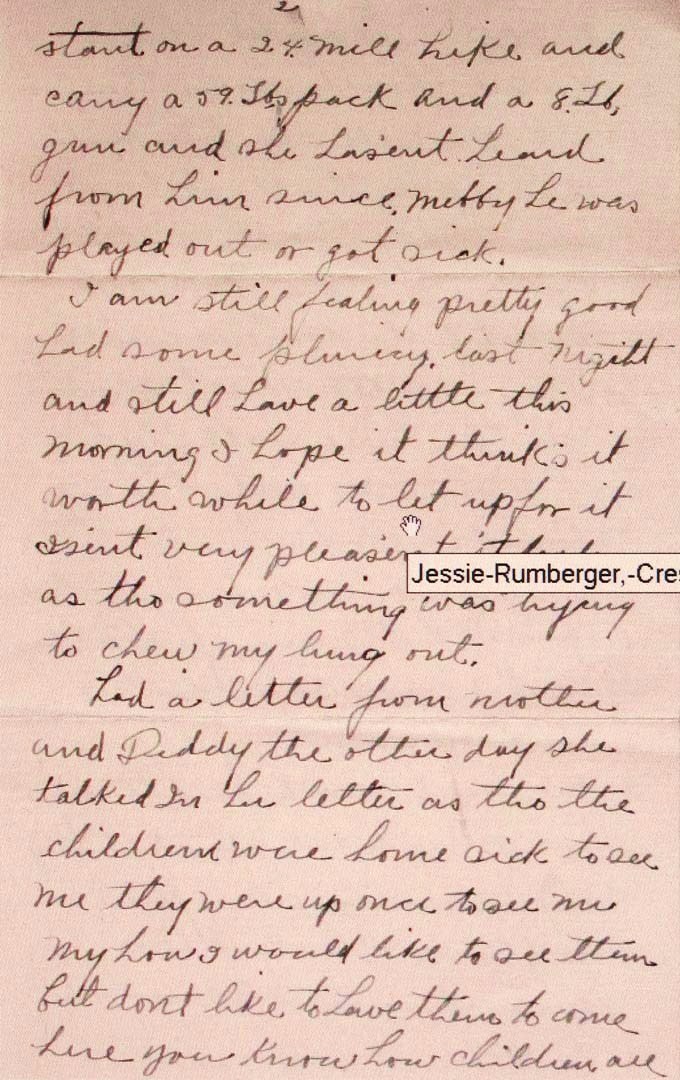 2
start on a 24 mile hike and
carry a 59. Lbs pack and a 8. Lb,
gun and she hasent heard
from him since, mebby he was
played out or got sick.
I am still fealing pretty good
had some pluricy, last nightt
and still have a little this
morning I hope it think's it
worth while to let up for it
isent very pleasent
Jessie-Rumberger,-Cres
as tho something was trying
to chew my lung out.
had a letter from mother
and Deddy the other day she
talked In her letter as tho the
children were home sick to see
me they were up once to see me
my how I would like to see them
but dont like to have them to come
here you know how children are